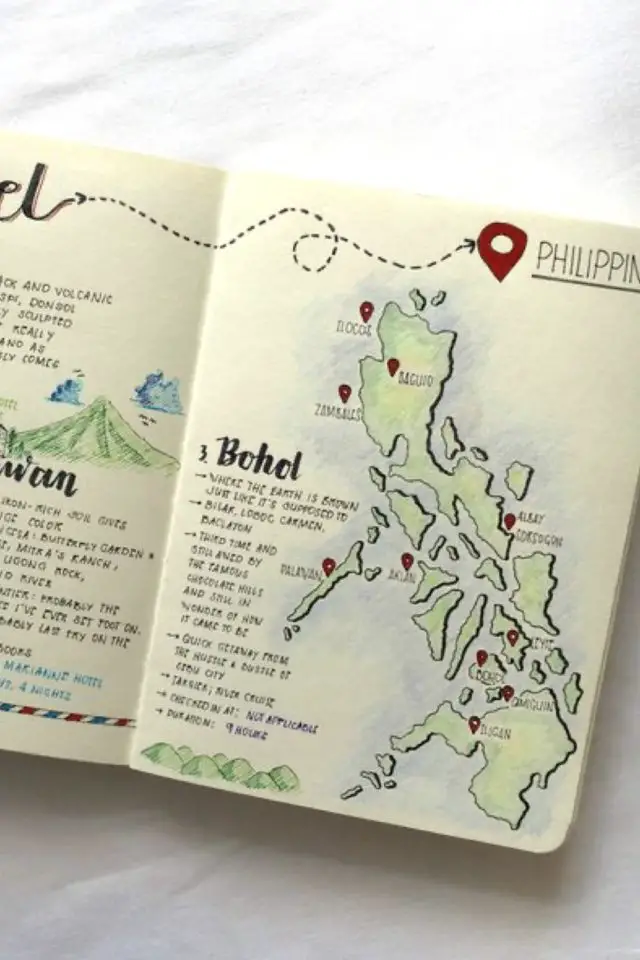 el
CK AND VOLCANIC
SPI, DONSOL
Y SCULPTED
REALLY
AND AS
SLY COMES
OTEL
wan
IRON-RICH SOIL GIVES
COLOR
BUTTERFLY GARDEN &
MITRA'S RANCH,
UGONG ROCK,
RIVER
NTIER: PROBABLY THE
I'VE EVER SET FOOT ON.
BABLY LAST TRY ON THE
BOOKS
MARIANNE HOTEL
4 NIGHTS
PHILIPPIN
3. Bohol
→ WHERE THE EARTH IS BROWN
JUST LIKE IT'S SUPPOSED TO
→ BILAR, LOBOC, CARMEN,
BACLAYON
→ THIRD TIME AND
STILL AWED BY
THE FAMOUS
CHOCOLATE HILLS
AND STILL IN
WONDER OF HOW
IT CAME TO BE
→ QUICK GETAWAY FROM
THE HUSTLE & BUSTLE OF
CEBU CITY
→ TARSIER; RIVER CRUISE
→ CHECKED IN AT: NOT APPLICABLE
→ DURATION: 9 HOURS
ILOCOS
BAGUIO
ZAMBALES
ALBAY
SORSOGON
PALAWAN
AKLAN
LEYTE
BOHOL
CAMIGUIN
ILIGAN